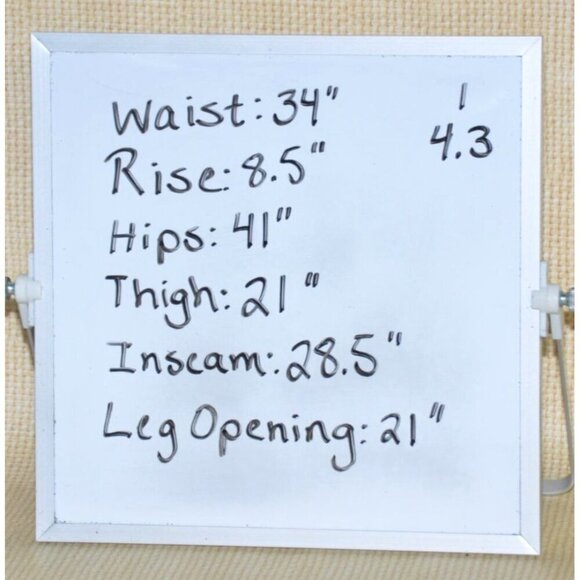 Waist: 34"
Rise: 8.5"
Hips: 41"
Thigh: 21"
Inseam: 28.5"
Leg Opening: 21"
1
4.3